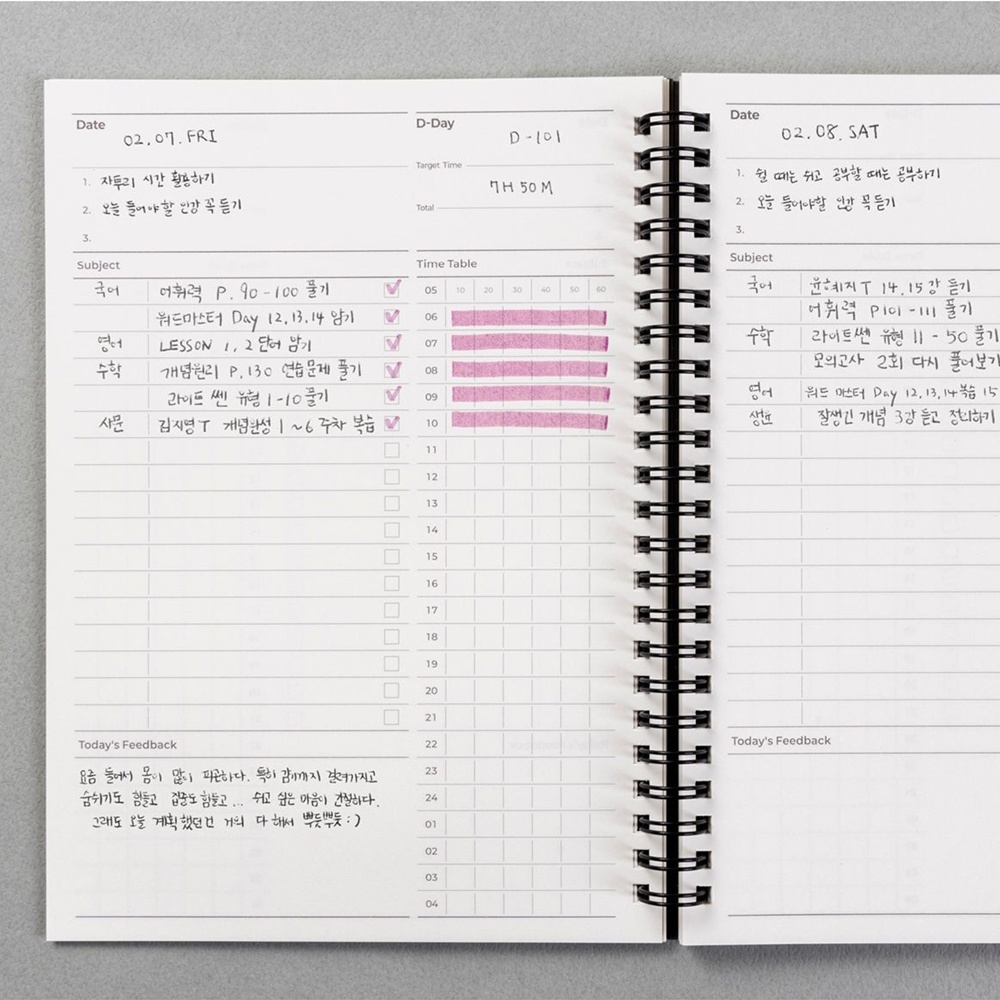 Date
02.07. FRI
1. 자투리 시간 활용하기
2. 오늘 들어야할 인강 꼭 듣기
3.
D-Day
D-101
Target Time
7H 50M
Total
Subject
국어 어휘력 P.90-100 풀기
워드마스터 Day 12,13,14 암기
영어 LESSON 1,2 단어 암기
수학 개념원리 P.130 연습문제 풀기
라이트 쎈 유형 1-10 풀기
사문 김지영T 개념완성 1~6 주차 복습
Time Table
05 10 20 30 40 50 60
06
07
08
09
10
11
12
13
14
15
16
17
18
19
20
21
22
23
24
01
02
03
04
Today's Feedback
요즘 들어서 몸이 많이 피곤하다. 특히 감기까지 걸려가지고
숨쉬기도 힘들고 집중도 힘들고... 쉬고 싶은 마음이 간절하다.
그래도 오늘 계획했던건 거의 다 해서 뿌듯뿌듯 :)
Date
02.08. SAT
1. 쉴 때는 쉬고 공부할 때는 공부하기
2. 오늘 들어야할 인강 꼭 듣기
3.
Subject
국어 윤혜지T 14,15강 듣기
어휘력 P101-111 풀기
수학 라이트쎈 유형 11-50 풀기
모의고사 2회 다시 풀어보기
영어 워드 마스터 Day 12,13,14 복습 15
생윤 잘생긴 개념 3강 듣고 정리하기
Today's Feedback